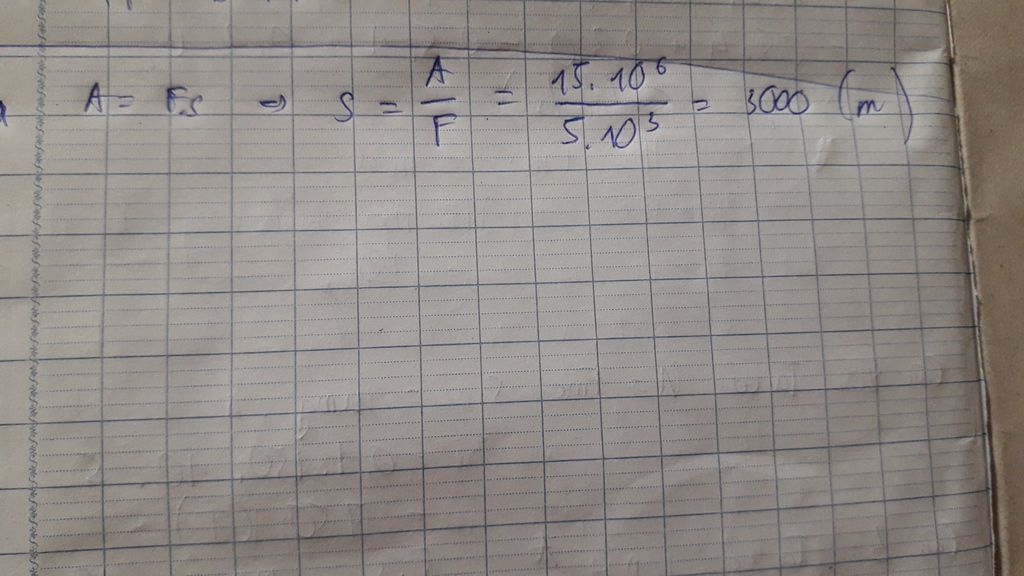 A = Fs => S = A/F = 15.10⁶/5.10³ = 3000 (m)